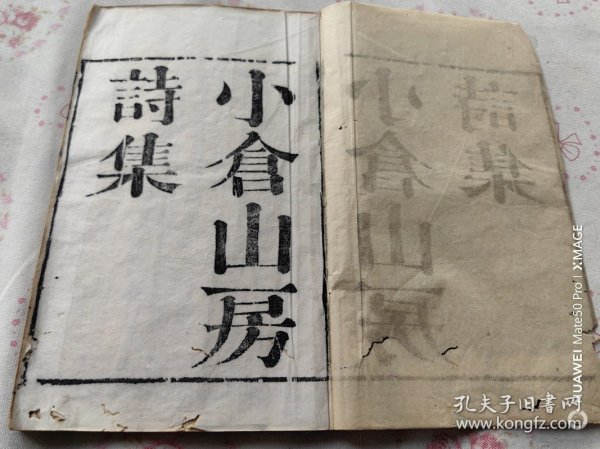 小倉山房
詩集
HUAWEI Mate50 Pro | XMAGE
孔夫子旧书网
www.kongfz.com